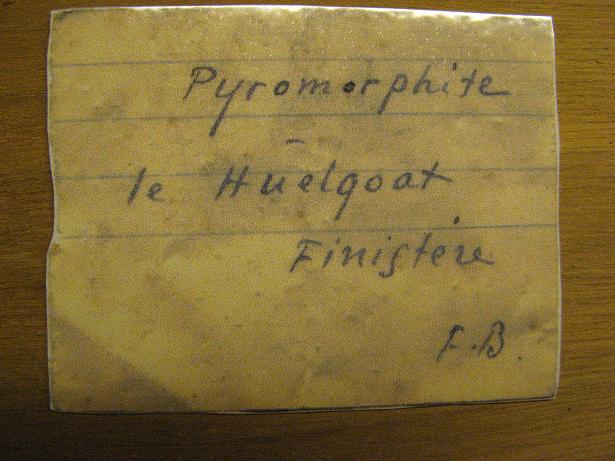 Pyromorphite
-
le Huelgoat
Finistère
F.B.